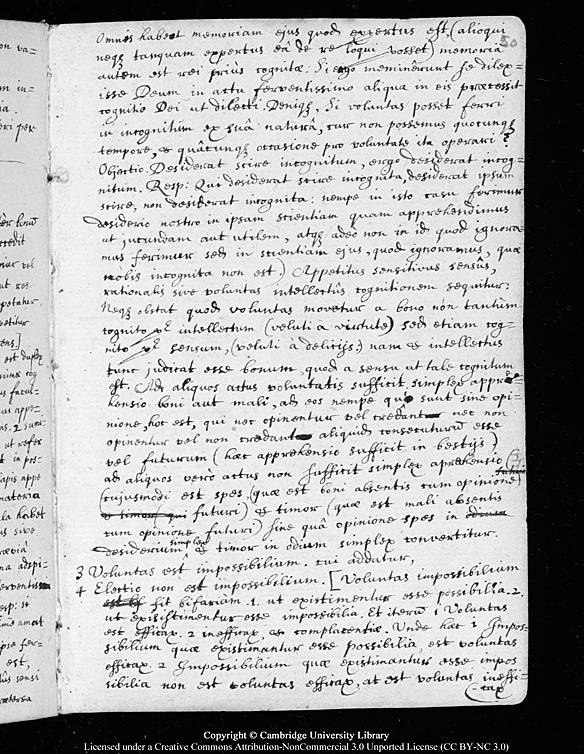 50
Omnis habet memoriam ejus quod expertus est, (alioqui
neqꝫ tanquam expertus eâ de re loqui posset) memoria
autem est rei priùs cognitæ. Si ergo meminêrunt se dilex=
isse Deum in actu ferventissimo aliqua in eis præcessit
cognitio Dei ut dilecti. Deniqꝫ, Si voluntas posset ferri
in incognitum ex suâ naturâ, cur non possemus quocunqꝫ
tempore, & quâcunqꝫ occasione pro voluntate ita operari?
Objectio. Desiderat scire incognitum, ergo desiderat incog=
nitum. Resp: Qui desiderat scire incognita, desiderat ipsum
scire, non desiderat incognita: nempe in isto casu ferimur
desiderio nostro in ipsam scientiam quam apprehendimus
ut jucundam aut utilem, atqꝫ adeò non in id quod ignora
mus ferimur sed in scientiam ejus, quod ignoramus, quæ
nobis incognita non est.) Appetitus sensitivus sensûs,
rationalis sive voluntas intellectûs cognitionem sequitur:
Neqꝫ obstat quod voluntas movetur a bono non tantùm
cognito pr intellectum (veluti à virtute) sed etiam cog=
nito pr sensum, (veluti à delicijs.) nam & intellectus
tunc judicat esse bonum quod a sensu ut tale cognitum
est. Ad aliquos actus voluntatis sufficit simplex appre=
hensio boni aut mali, ad eos nempe qui sunt sine opi=
nione, hoc est, qui nec opinentur vel credant nec non
opinentur vel non credant aliquid consecuturum esse
vel futurum (hæc apprehensio sufficit in bestijs)
ad aliquos vero actus non sufficit simplex aprehensio
(cujusmodi est spes (quæ est boni absentis cum opinione
& timor (qui futuri) & timor (quæ est mali absentis
cum opinione futuri) sine quâ opinione spes in odium
desiderium simplex & timor in odium simplex convertitur.
3 Voluntas est impossibilium. cui addatur,
4 Electio non est impossibilium. [Voluntas impossibilium
fit bifariam. 1. ut existimentur esse possibilia. 2.
ut existimentur esse impossibilia. Et iterum 1 Voluntas
est efficax. 2 inefficax, as complacentiæ. Unde hæc 1 Impos=
sibilium quæ existimantur esse possibilia, est voluntas
efficax. 2 Impossibilium quæ existimantur esse impos
sibilia non est voluntas efficax, at est voluntas ineffi=
cax
Copyright © Cambridge University Library
Licensed under a Creative Commons Attribution-NonCommercial 3.0 Unported License (CC BY-NC 3.0)